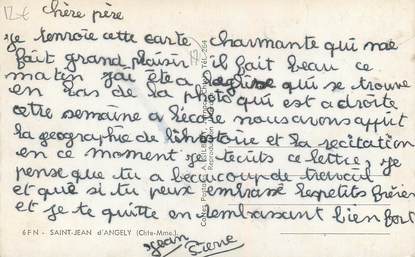 12€ chère père
je tenvoie cette carte charmante qui me
fait grand plaisir il fait beau ce
matin jai été a leglise qui se trouve
en bas de la photo qui est a droite
cette semaine a lécole nous avons apprit
la geographie de l'histoire et la recitation
en ce moment je técrits ce lettre, je
pense que tu a beaucoup de travail
et que si tu peux embrasse les petits frères
et je te quitte en t'embrassant bien fort
6 F N - SAINT-JEAN d'ANGELY (Chte-Mme.)
Jean
Pierre